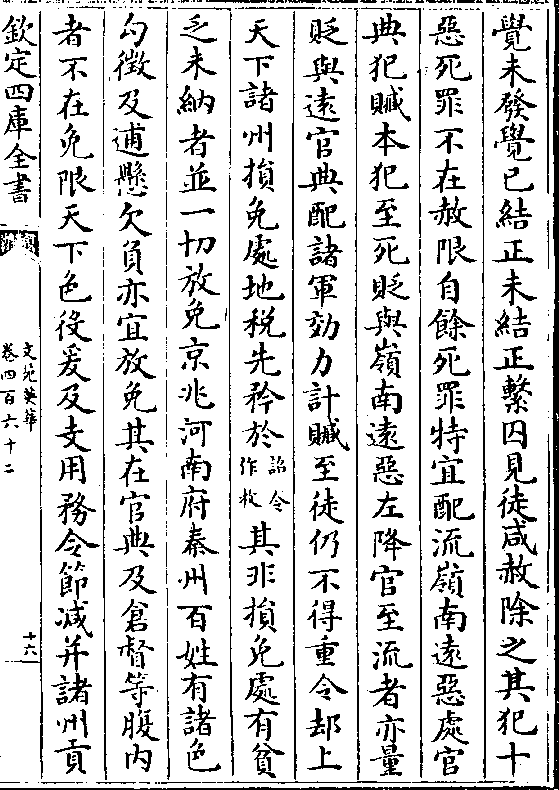 覺未發覺已結正未結正繫囚見徒咸赦除之其犯十
惡死罪不在赦限自餘死罪特宜配流嶺南遠惡處官
典犯贓本犯至死貶與嶺南遠惡左降官至流者亦量
貶與遠官典配諸軍効力計贓至徒仍不得重令却上
天下諸州損免處地稅先矜於詔令作放其非損免處有貧
乏未納者並一切放免京兆河南府秦州百姓有諸色
勾徵及逋懸欠負亦宜放免其在官典及倉督等腹内
者不在免限天下色役爰及支用務令節減并諸州貢
欽定四庫全書
文苑英華
卷四百六十二
十六